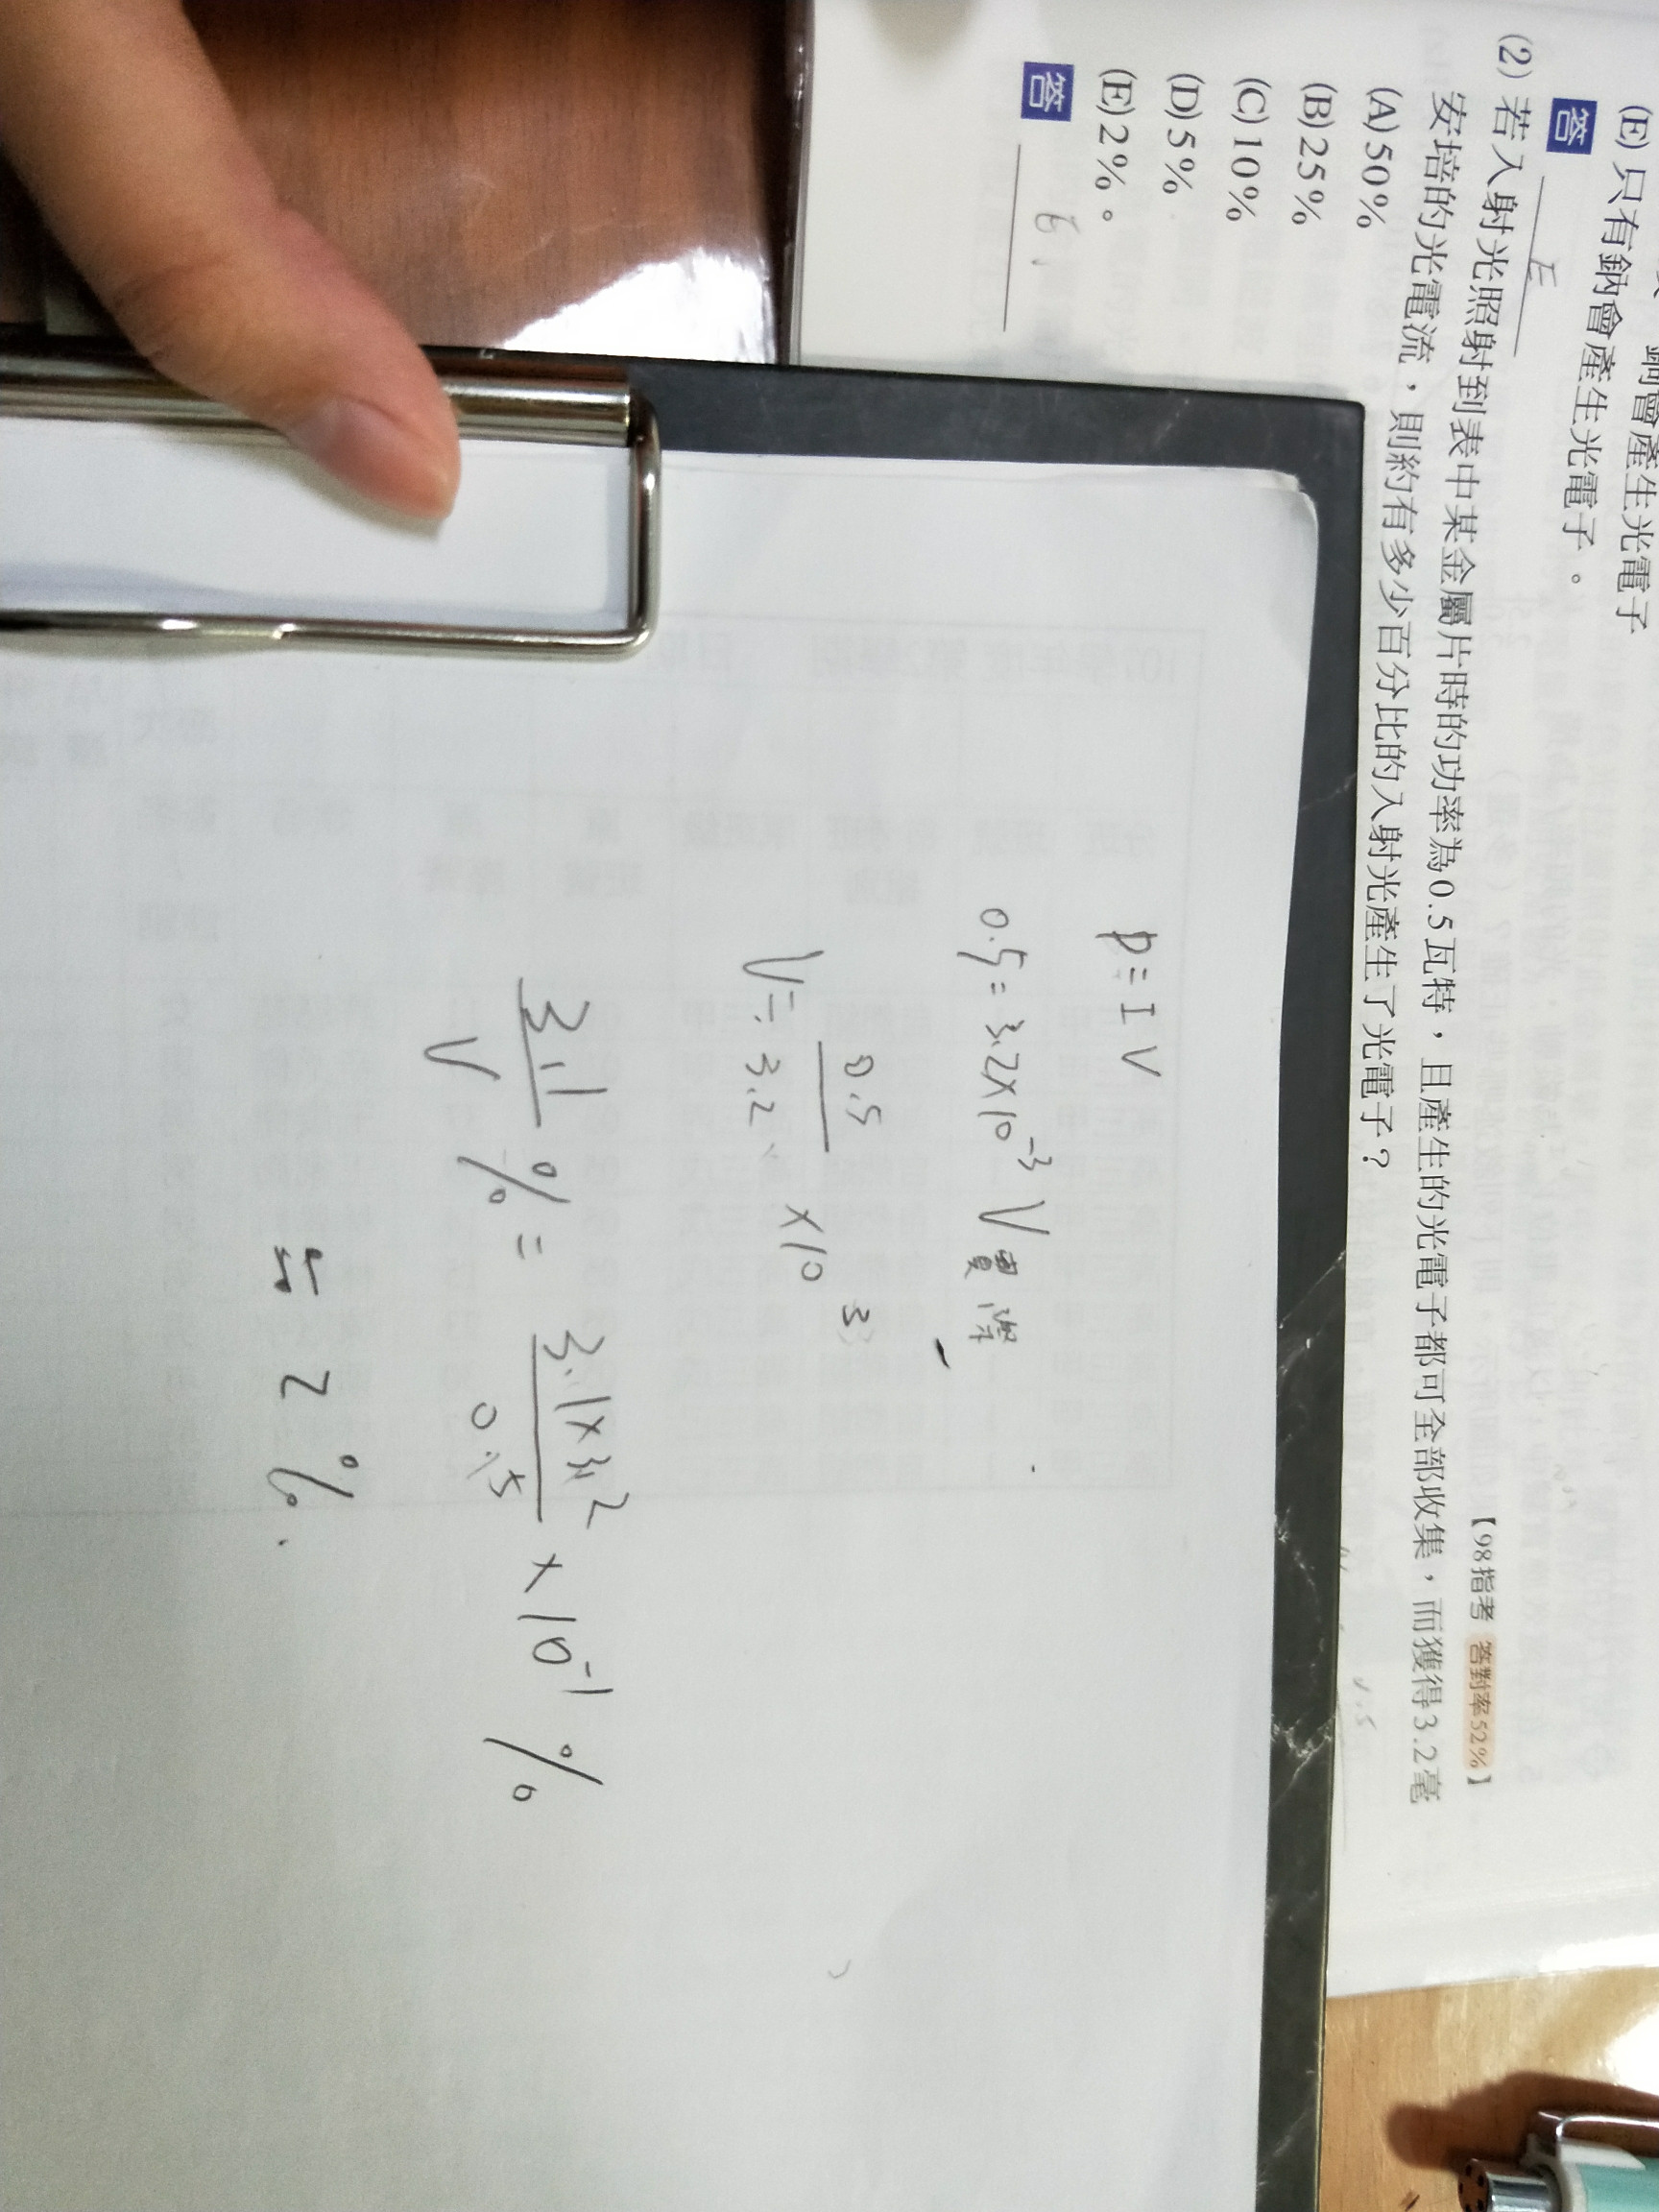 銅會產生光電子
(E)只有鈉會產生光電子。
答 E
(2)若入射光照射到表中某金屬片時的功率為0.5瓦特，且產生的光電子都可全部收集，而獲得3.2毫
安培的光電流，則約有多少百分比的入射光產生了光電子？
【98指考 答對率52%】
(A)50%
(B)25%
(C)10%
(D)5%
(E)2%。
答 E
P=IV
0.5=3.2×10⁻³ V實際
V= 0.5/3.2 ×10³
3.1/V % = 3.1×3.2/0.5 ×10⁻¹ %
≒ 2%.